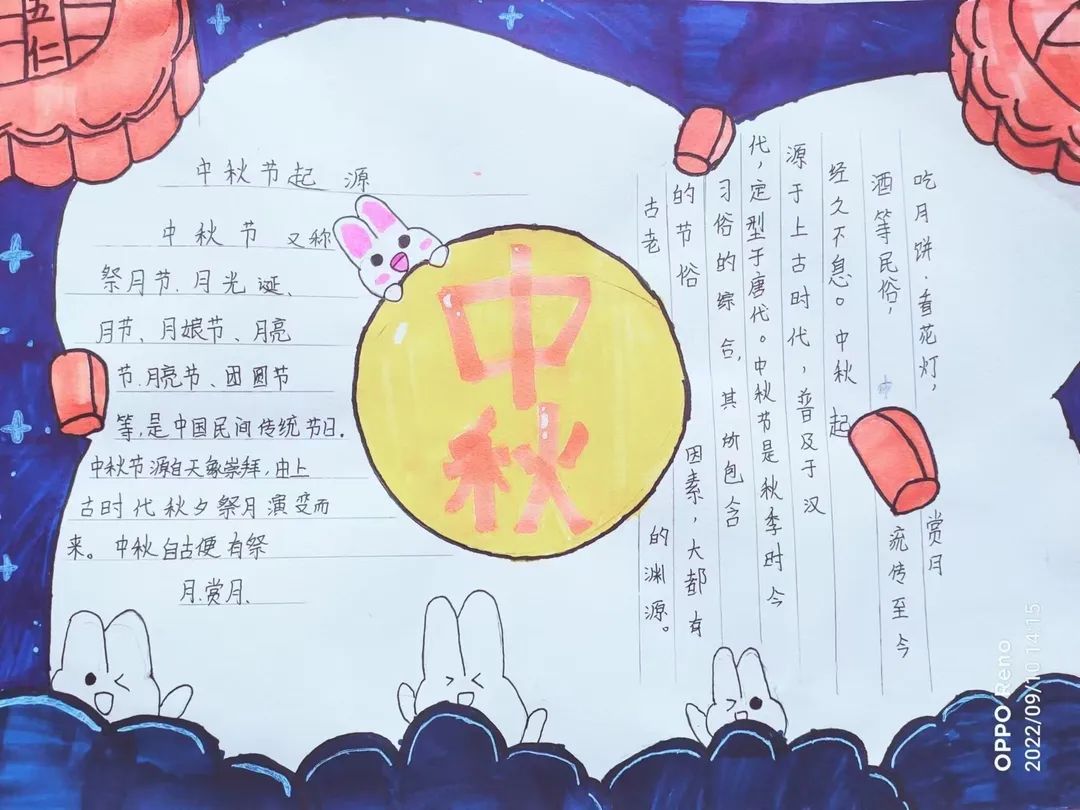 五
仁
中秋节起源
中秋节又称
祭月节.月光诞、
月节、月娘节、月亮
节.月亮节、团圆节
等,是中国民间传统节日.
中秋节源自天象崇拜,由上
古时代秋夕祭月演变而
来。中秋自古便有祭
月.赏月、
中
秋
吃月饼.看花灯,赏月
酒等民俗,流传至今
经久不息。中秋起
源于上古时代,普及于汉
代,定型于唐代。中秋节是秋季时令
习俗的综合,其所包含
的节俗因素,大都有
古老的渊源。
OPPO Reno
2022/09/10 14:15